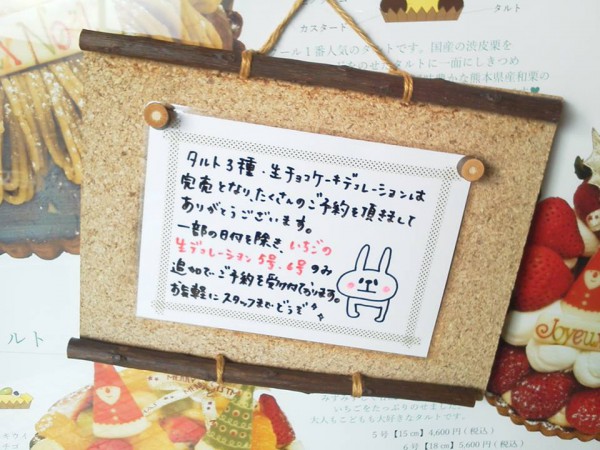 カスタード
タルト
ール1番人気のタルトです。国産の渋皮栗を
のせたタルトに一面にしきつめ
豊かな熊本県産和栗の
タルト3種・生チョコケーキデコレーションは
完売となり、たくさんのご予約を頂きまして
ありがとうございます。
一部の日付を除き、いちごの
生デコレーション5号、6号のみ
追加でご予約を受け付ております。
お気軽にスタッフまでどうぞ
ルト
Joyeu
いちごをたっぷりのせました。
大人もこどもも大好きなタルトです。
5号【15cm】4,600円(税込)
6号【18cm】5,600円(税込)